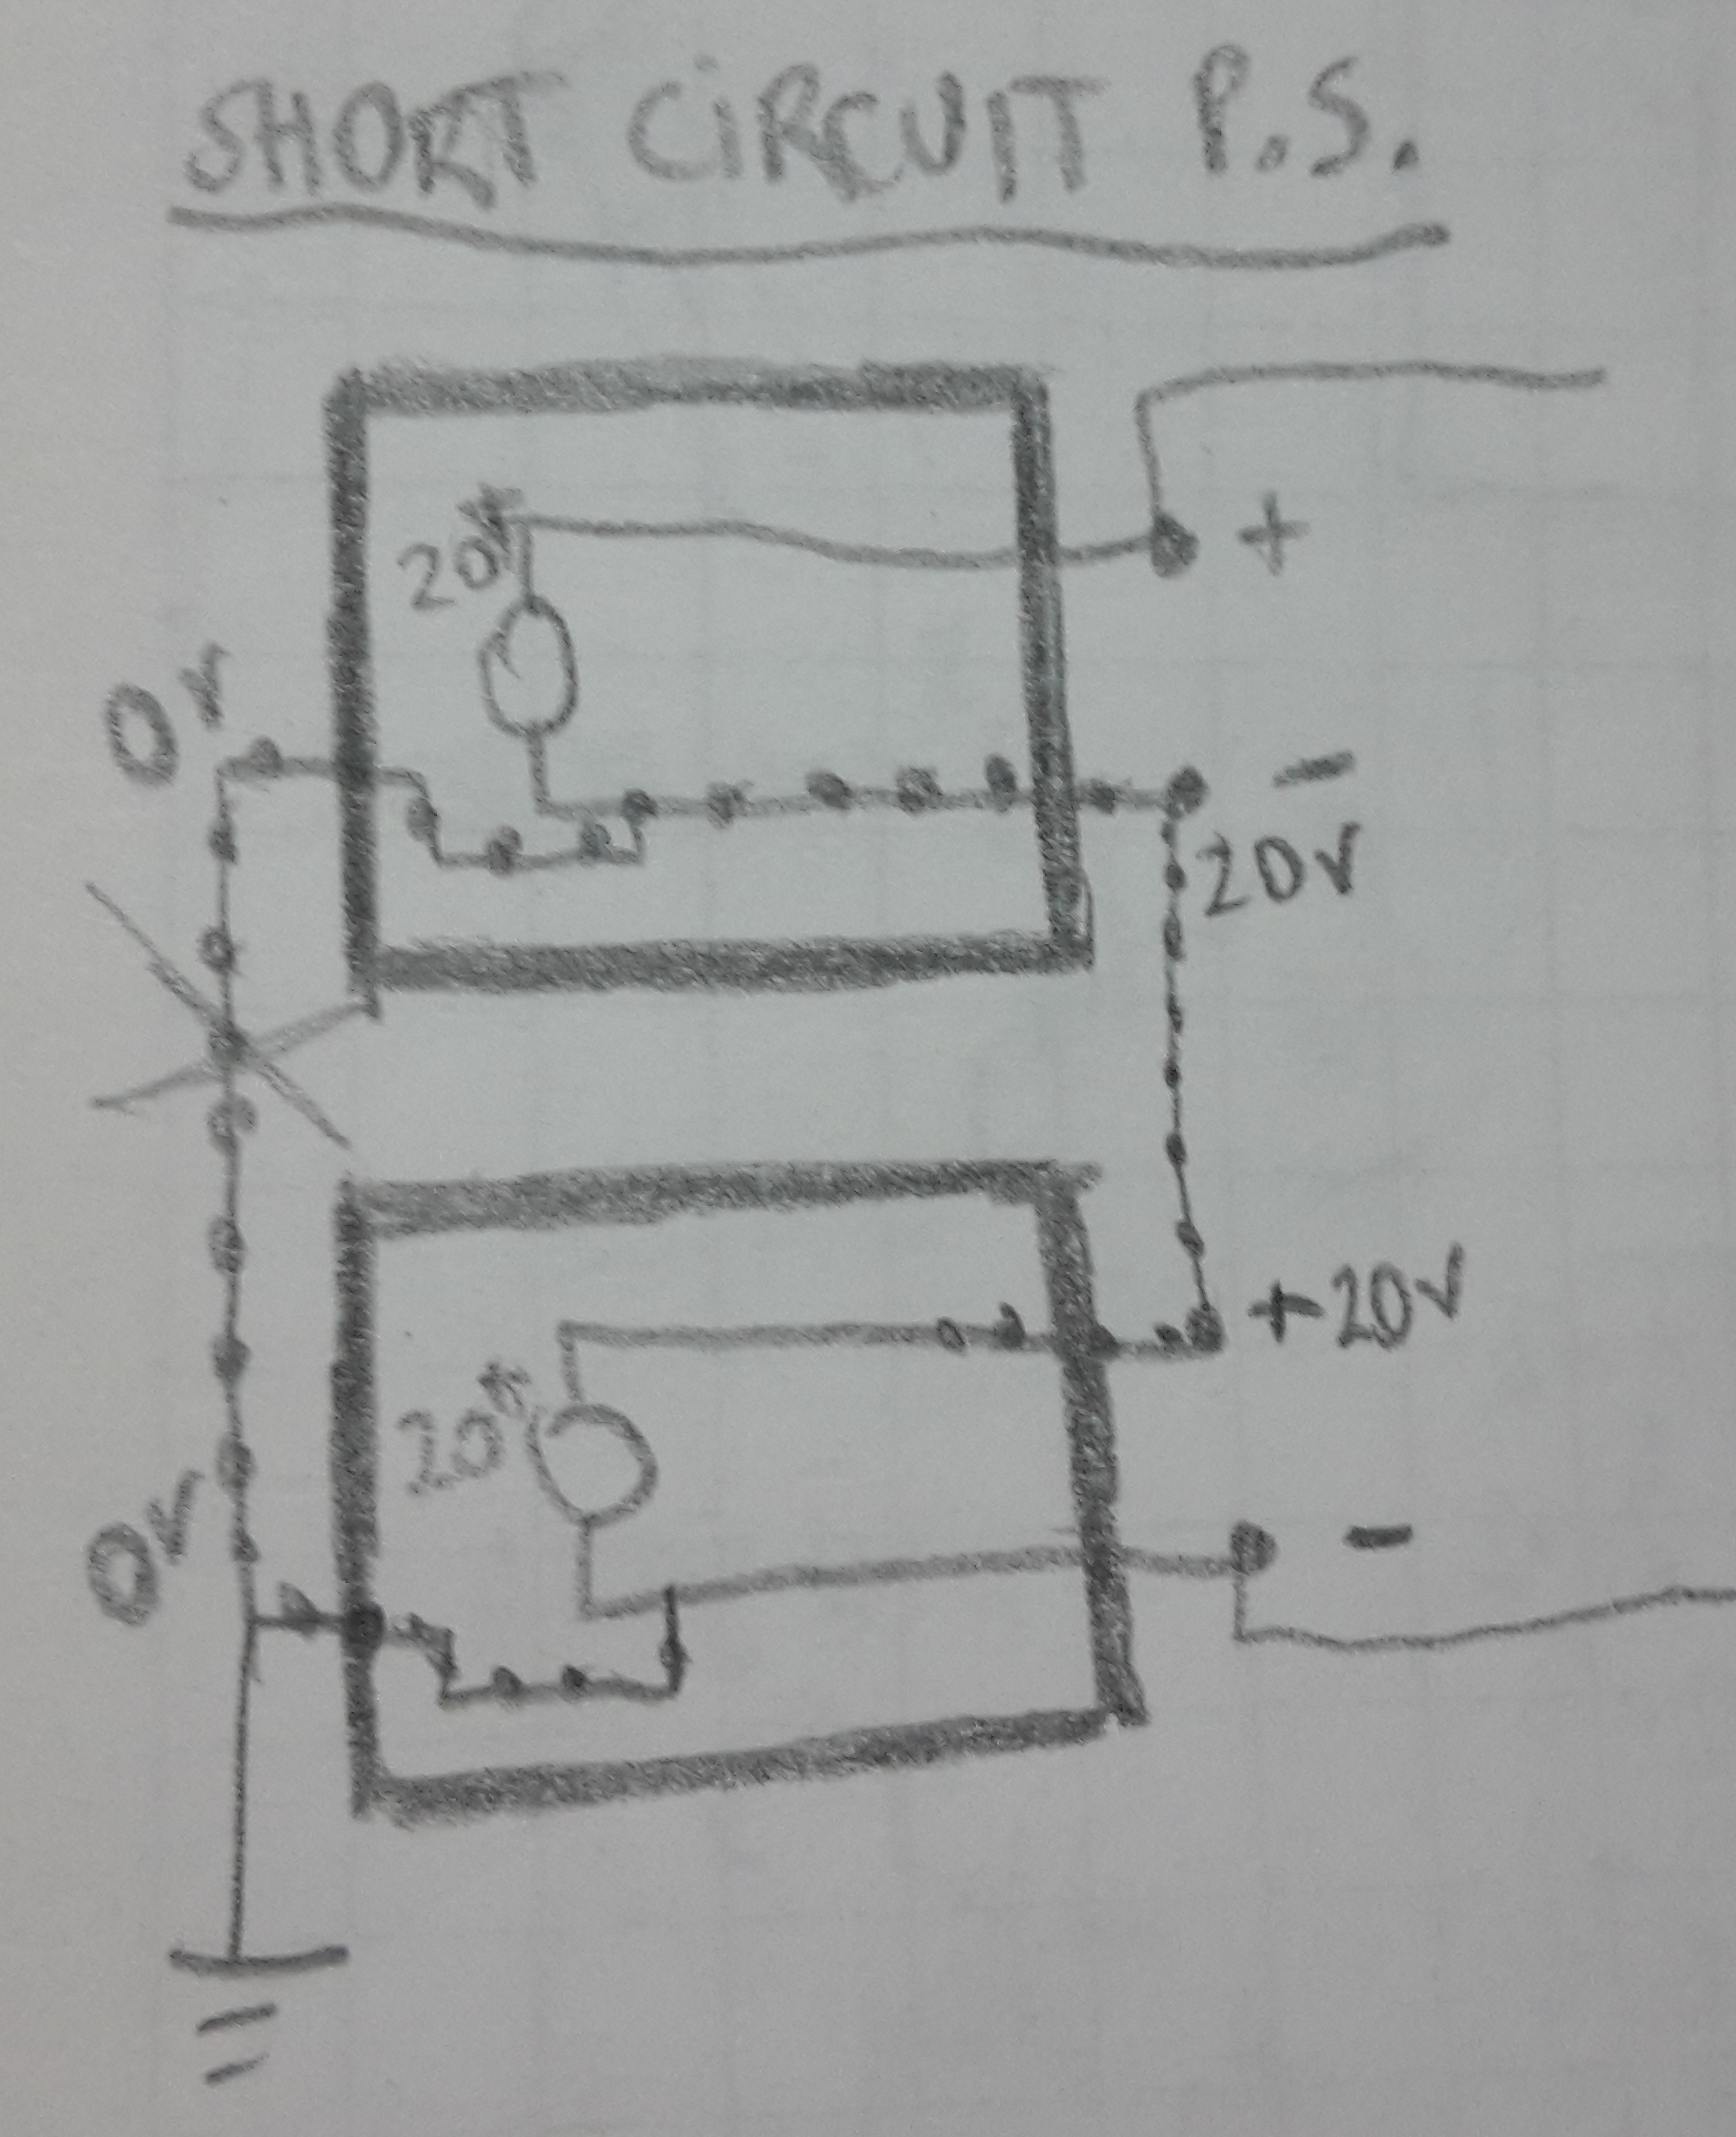 SHORT CIRCUIT P.S.
20+
+
0v
-
20v
+20v
20+
0v
-